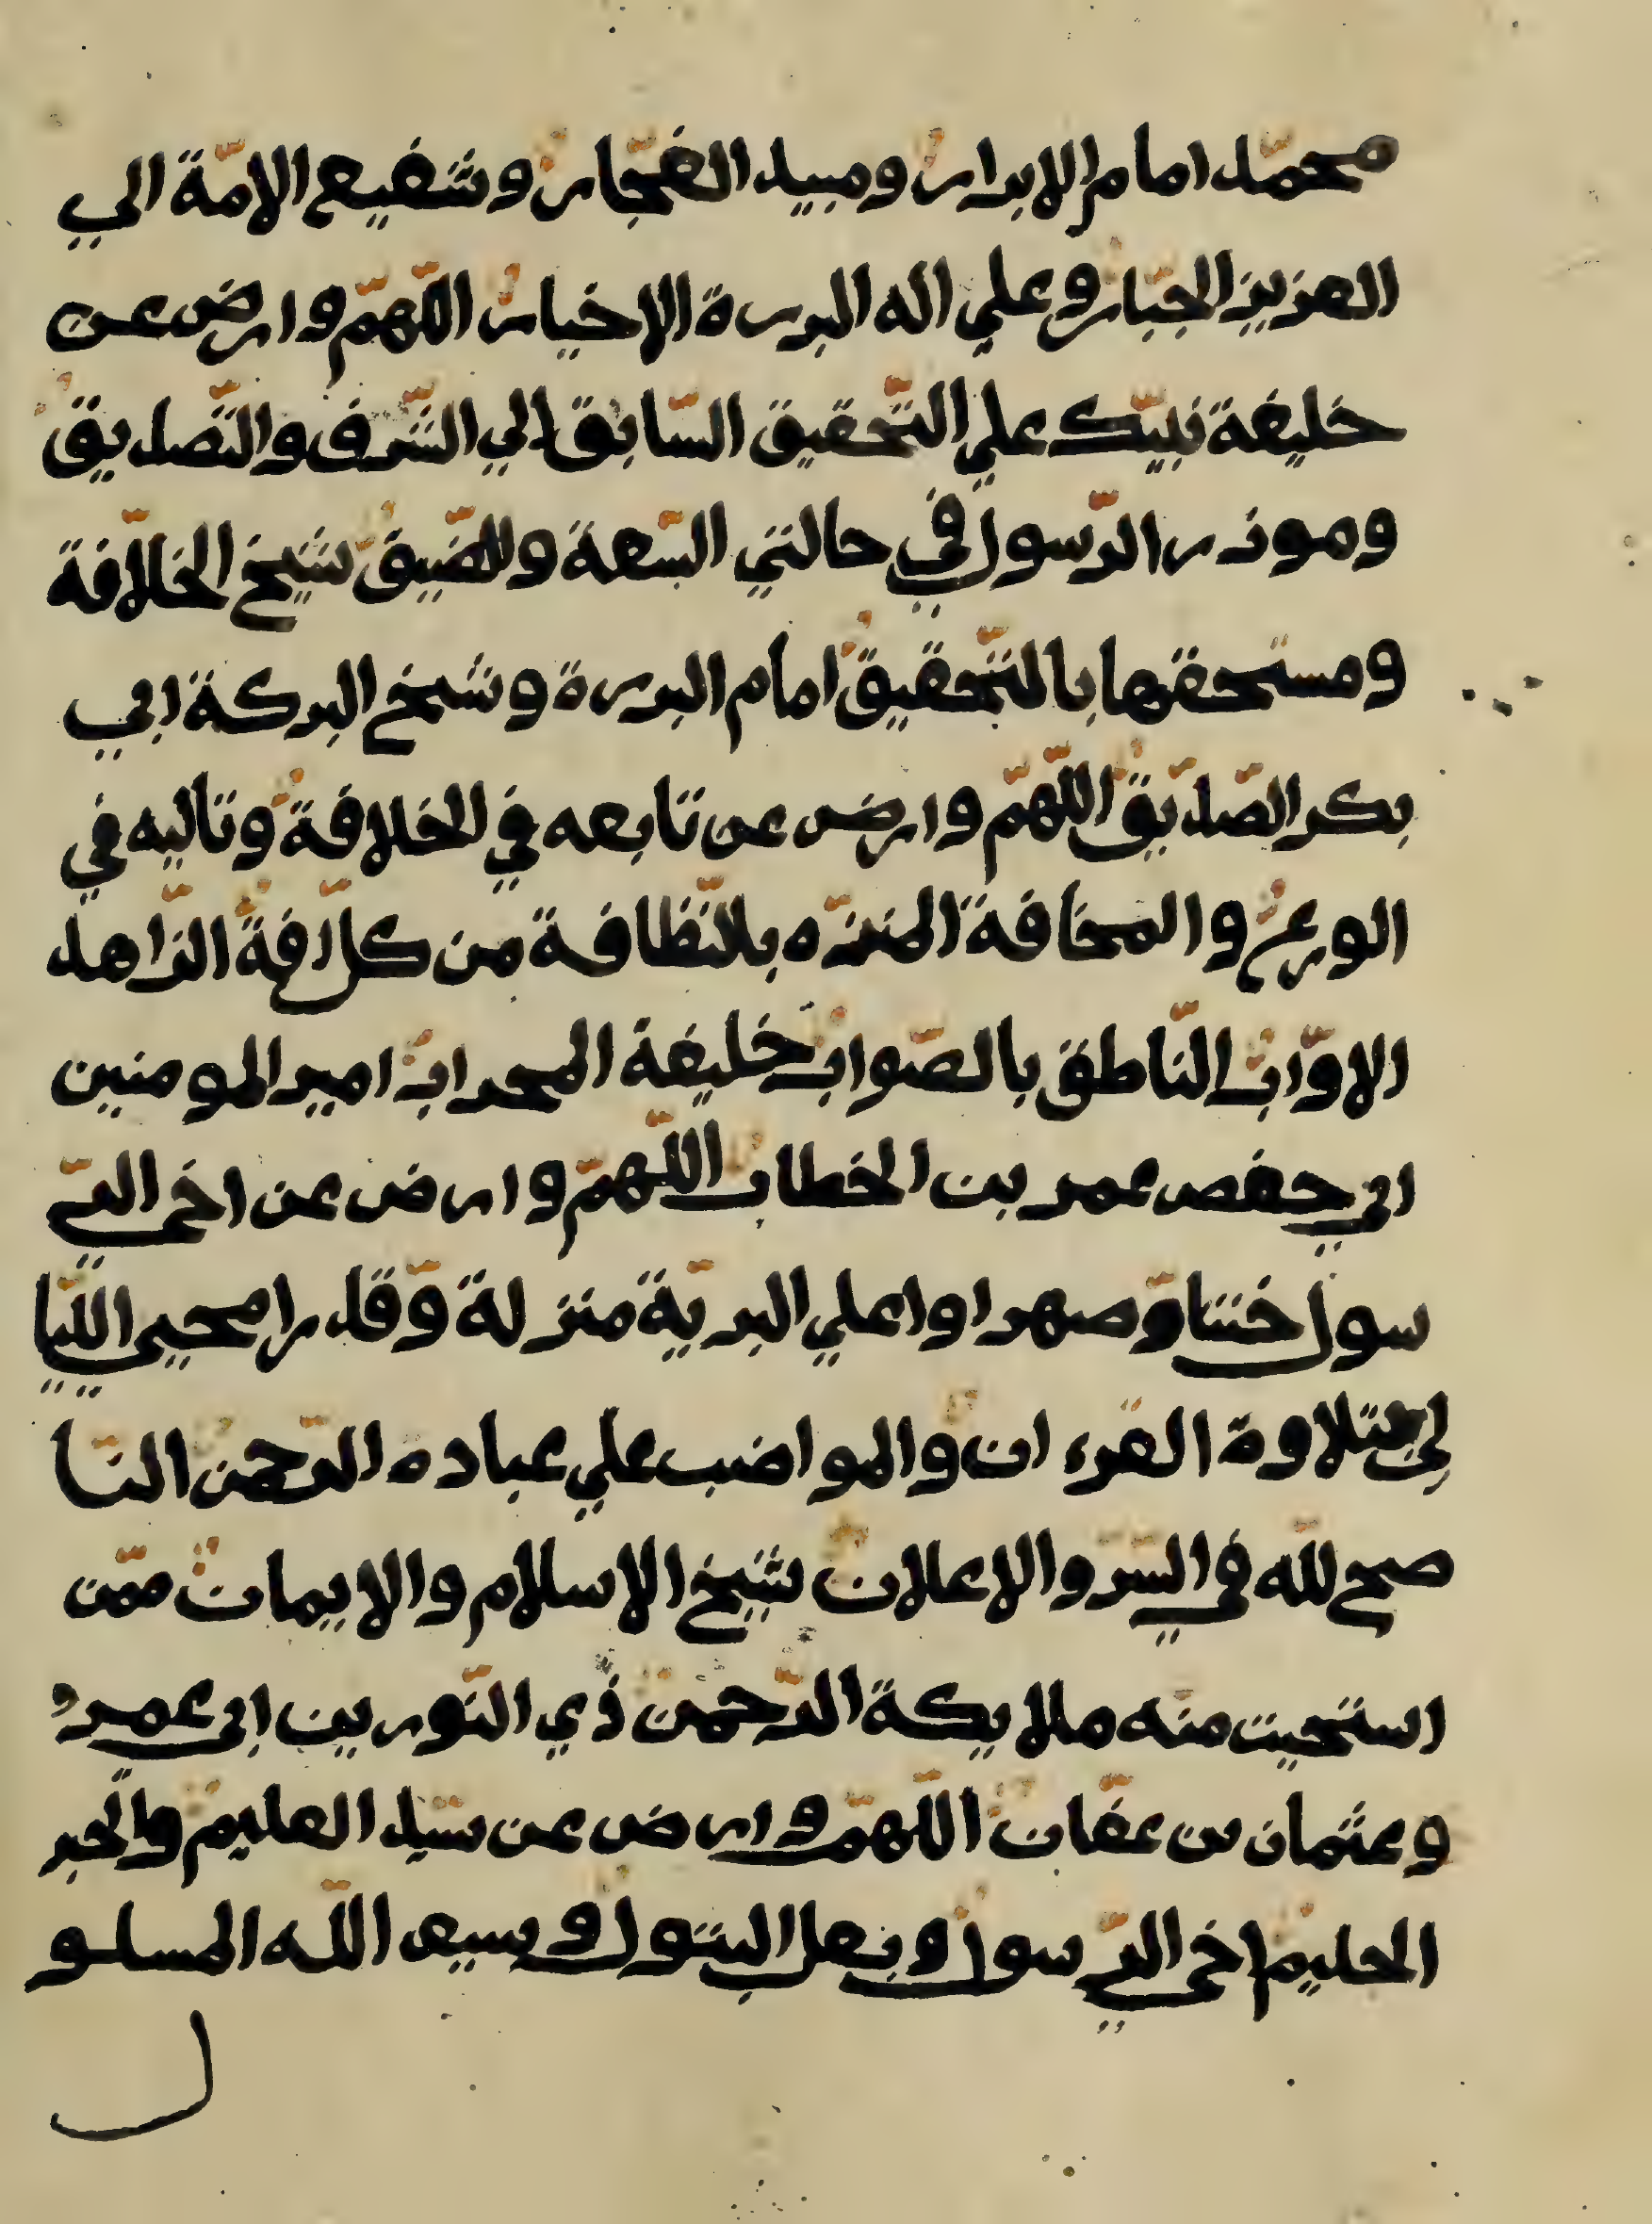 محمّد امام الابرار ومبيد الفجّار وشفيع الامّة الي
العزيز الجبّار وعلي اله البررة الاخيار اللّهمّ وارض عن
خليفة نبيّك علي التّحقيق السّابق الي الشّرف والتّصديق
وموذر الرّسول في حالتي السّعة والضّيق شيخ الخلافة
ومستحقها بالتّحقيق امام البررة وشيخ البركة ابي
بكر الصّدّيق اللّهمّ وارض عن تابعه في الخلافة وتاليه في
الورع والمخافة المنزّه بالنّظافة من كلّ افة الزّاهد
الاوّاب النّاطق بالصّواب خليفة المحراب امير المومنين
ابي حفص عمر بن الخطاب اللّهمّ وارض عن اخي الرّ
سول ختنا وّصهرا واعلي البريّة منزلة وّقدرا محيي اللّيا
لي بتلاوة القرءان والمواضب علي عباده الرّحمن النّا
صح للّه في السّر والاعلان شيخ الاسلام والايمان ممّن
استحيت منه ملايكة الرّحمن ذي النّورين ابي عمر
وعثمان بن عفّان اللّهمّ وارض عن سيّد العليم والحبر
الحليم اخي الرّسول وبعل البتول وسيف اللّه المسلو
ل